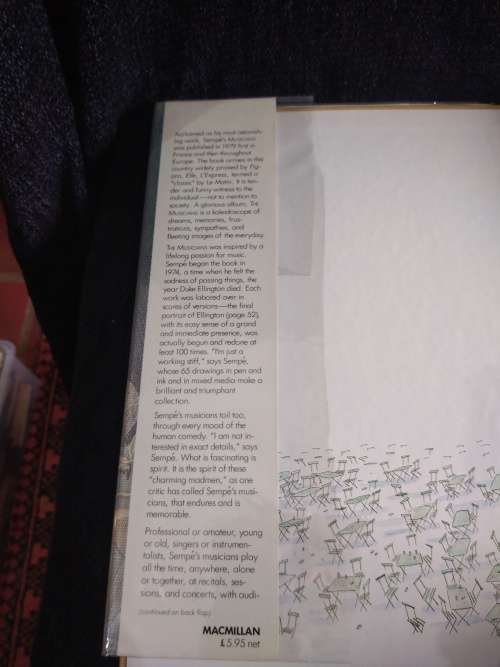 Acclaimed as his most astonish-
ing work, Sempé's MUSICIANS
was published in 1979 first in
France and then throughout
Europe. The book arrives in this
country widely praised by Fig-
aro, Elle, L'Express, termed a
"classic" by Le Matin. It is ten-
der and funny witness to the
individual—not to mention to
society. A glorious album, THE
MUSICIANS is a kaleidoscope of
dreams, memories, frus-
trations, sympathies, and
fleeting images of the everyday.
THE MUSICIANS was inspired by a
lifelong passion for music.
Sempé began the book in
1974, a time when he felt the
sadness of passing things, the
year Duke Ellington died. Each
work was labored over in
scores of versions—the final
portrait of Ellington (page 52),
with its easy sense of a grand
and immediate presence, was
actually begun and redone at
least 100 times. "I'm just a
working stiff," says Sempé,
whose 65 drawings in pen and
ink and in mixed media make a
brilliant and triumphant
collection.
Sempé's musicians toil too,
through every mood of the
human comedy. "I am not in-
terested in exact details," says
Sempé. What is fascinating is
spirit. It is the spirit of these
"charming madmen," as one
critic has called Sempé's musi-
cians, that endures and is
memorable.
Professional or amateur, young
or old, singers or instrumen-
talists, Sempé's musicians play
all the time, anywhere, alone
or together, at recitals, ses-
sions, and concerts, with audi-
(continued on back flap)
MACMILLAN
£5.95 net